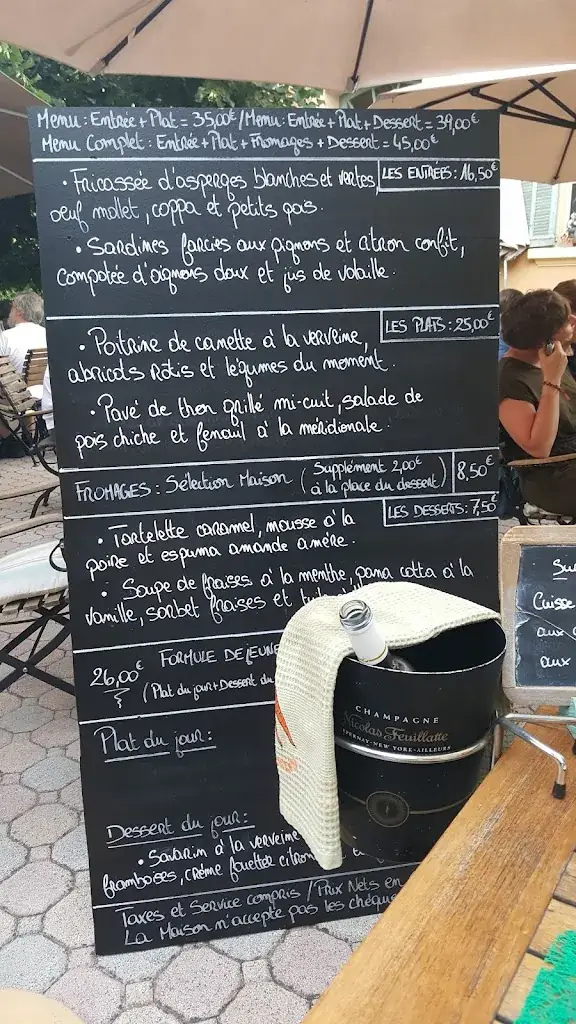 Menu: Entrée + Plat = 35,00€ / Menu: Entrée + Plat + Dessert = 39,00€
Menu Complet: Entrée + Plat + Fromages + Dessert = 45,00€
LES ENTRÉES: 16,50€
• Fricassée d'asperges blanches et vertes,
oeuf mollet, coppa et petits pois.
• Sardines farcies aux pignons et citron confit,
compotée d'oignons doux et jus de volaille.
LES PLATS: 25,00€
• Poitrine de canette à la verveine,
abricots rôtis et légumes du moment.
• Pavé de thon grillé mi-cuit, salade de
pois chiche et fenouil à la méridionale.
FROMAGES: Sélection Maison (Supplément 2,00€
à la place du dessert) 8,50€
LES DESSERTS: 7,50€
• Tartelette caramel, mousse à la
poire et espuma amande amère.
• Soupe de fraises à la menthe, pana cotta à la
vanille, sorbet fraises et
26,00€ FORMULE DEJEUNE
(Plat du jour + Dessert du
Plat du jour:
Dessert du jour:
• Savarin à la verveine
framboises, crème fouettée citron
Taxes et Service compris / Prix Nets en
La Maison n'accepte pas les chèques
CHAMPAGNE
Nicolas Feuillatte
EPERNAY-NEW YORK-AILLEURS
Su
Cuisse
aux
aux